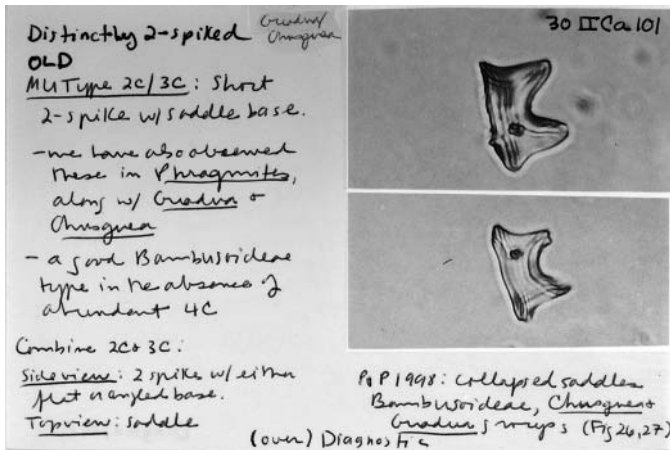 Distinctly 2-spiked
Guadua/
Chusquea
OLD
MU Type 2C/3C: Short
2-spike w/ saddle base.
- we have also observed
these in Phragmites,
along w/ Guadua +
Chusquea
- a good Bambusoideae
type in the absence of
abundant 4C
Combine 2C + 3C:
Sideview: 2 spike w/ either
flat or angled base.
Topview: saddle
30 II Ca 101
P&P 1998: collapsed saddles
Bambusoideae, Chusquea +
Guadua groups (Fig 26, 27)
(over) Diagnostic